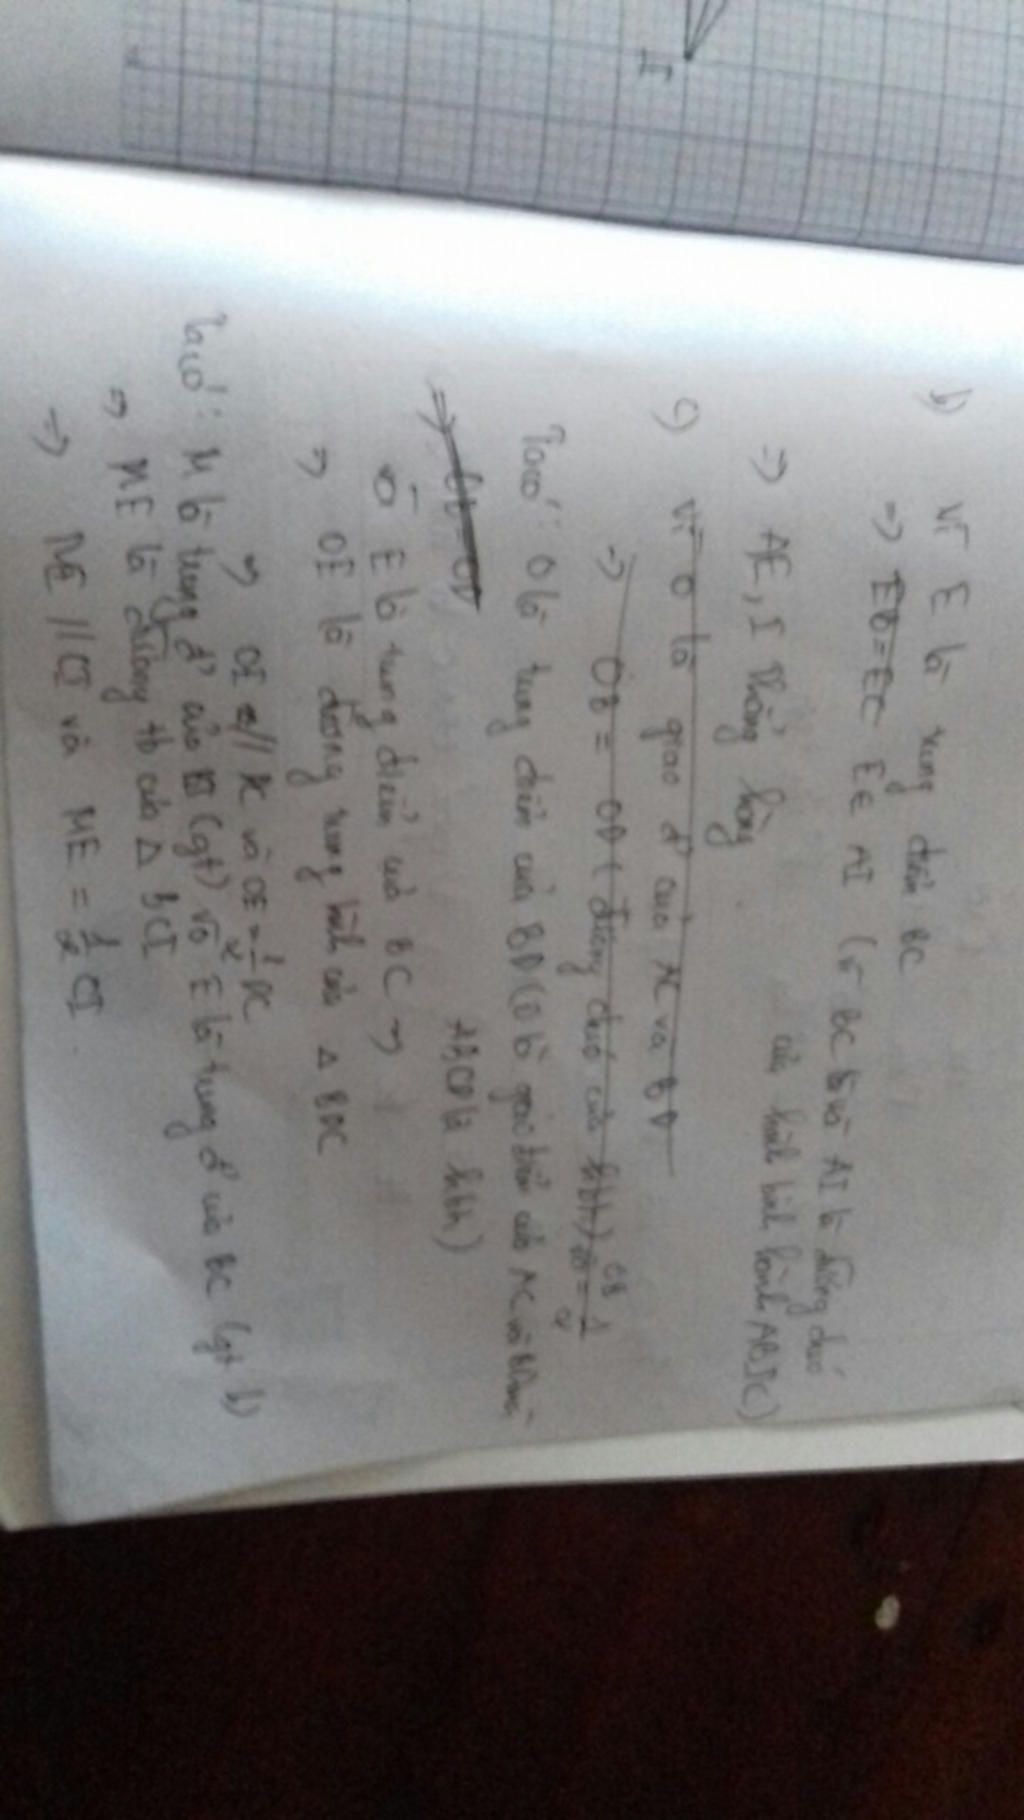 I
b) Vì E là trung điểm BC
=> EB=EC E ∈ AI (vì BC và AI là đường chéo
của hình bình hành ABIC)
=> AE, I thẳng hàng
c) Vì O là giao đ' của AC và BD
=> OB = OD (đường chéo của hbh)
OB 1
Ta có: O là trung điểm của BD (O là giao điểm của AC và BD
ABCD là hbh)
=> OD
và E là trung điểm của BC =>
=> OE là đường trung bình của Δ BDC
=> OE // DC và OE = 1/2 DC
Ta có: M là trung đ' của BI (gt) và E là trung đ' của BC (gt b)
=> ME là đường tb của Δ BCI
=> ME // CI và ME = 1/2 CI